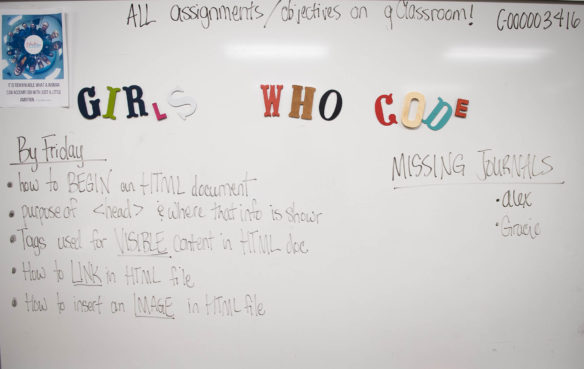 ALL assignments/objectives on gClassroom! C-000003416
IT IS REMARKABLE WHAT A WOMAN
CAN ACCOMPLISH WITH JUST A LITTLE
AMBITION
GIRLS WHO CODE
By Friday
• how to BEGIN an HTML document
• purpose of <head> & where that info is shown
• Tags used for VISIBLE content in HTML doc
• How to LINK in HTML file
• How to insert an IMAGE in HTML file
MISSING JOURNALS
• alex
• Gracie